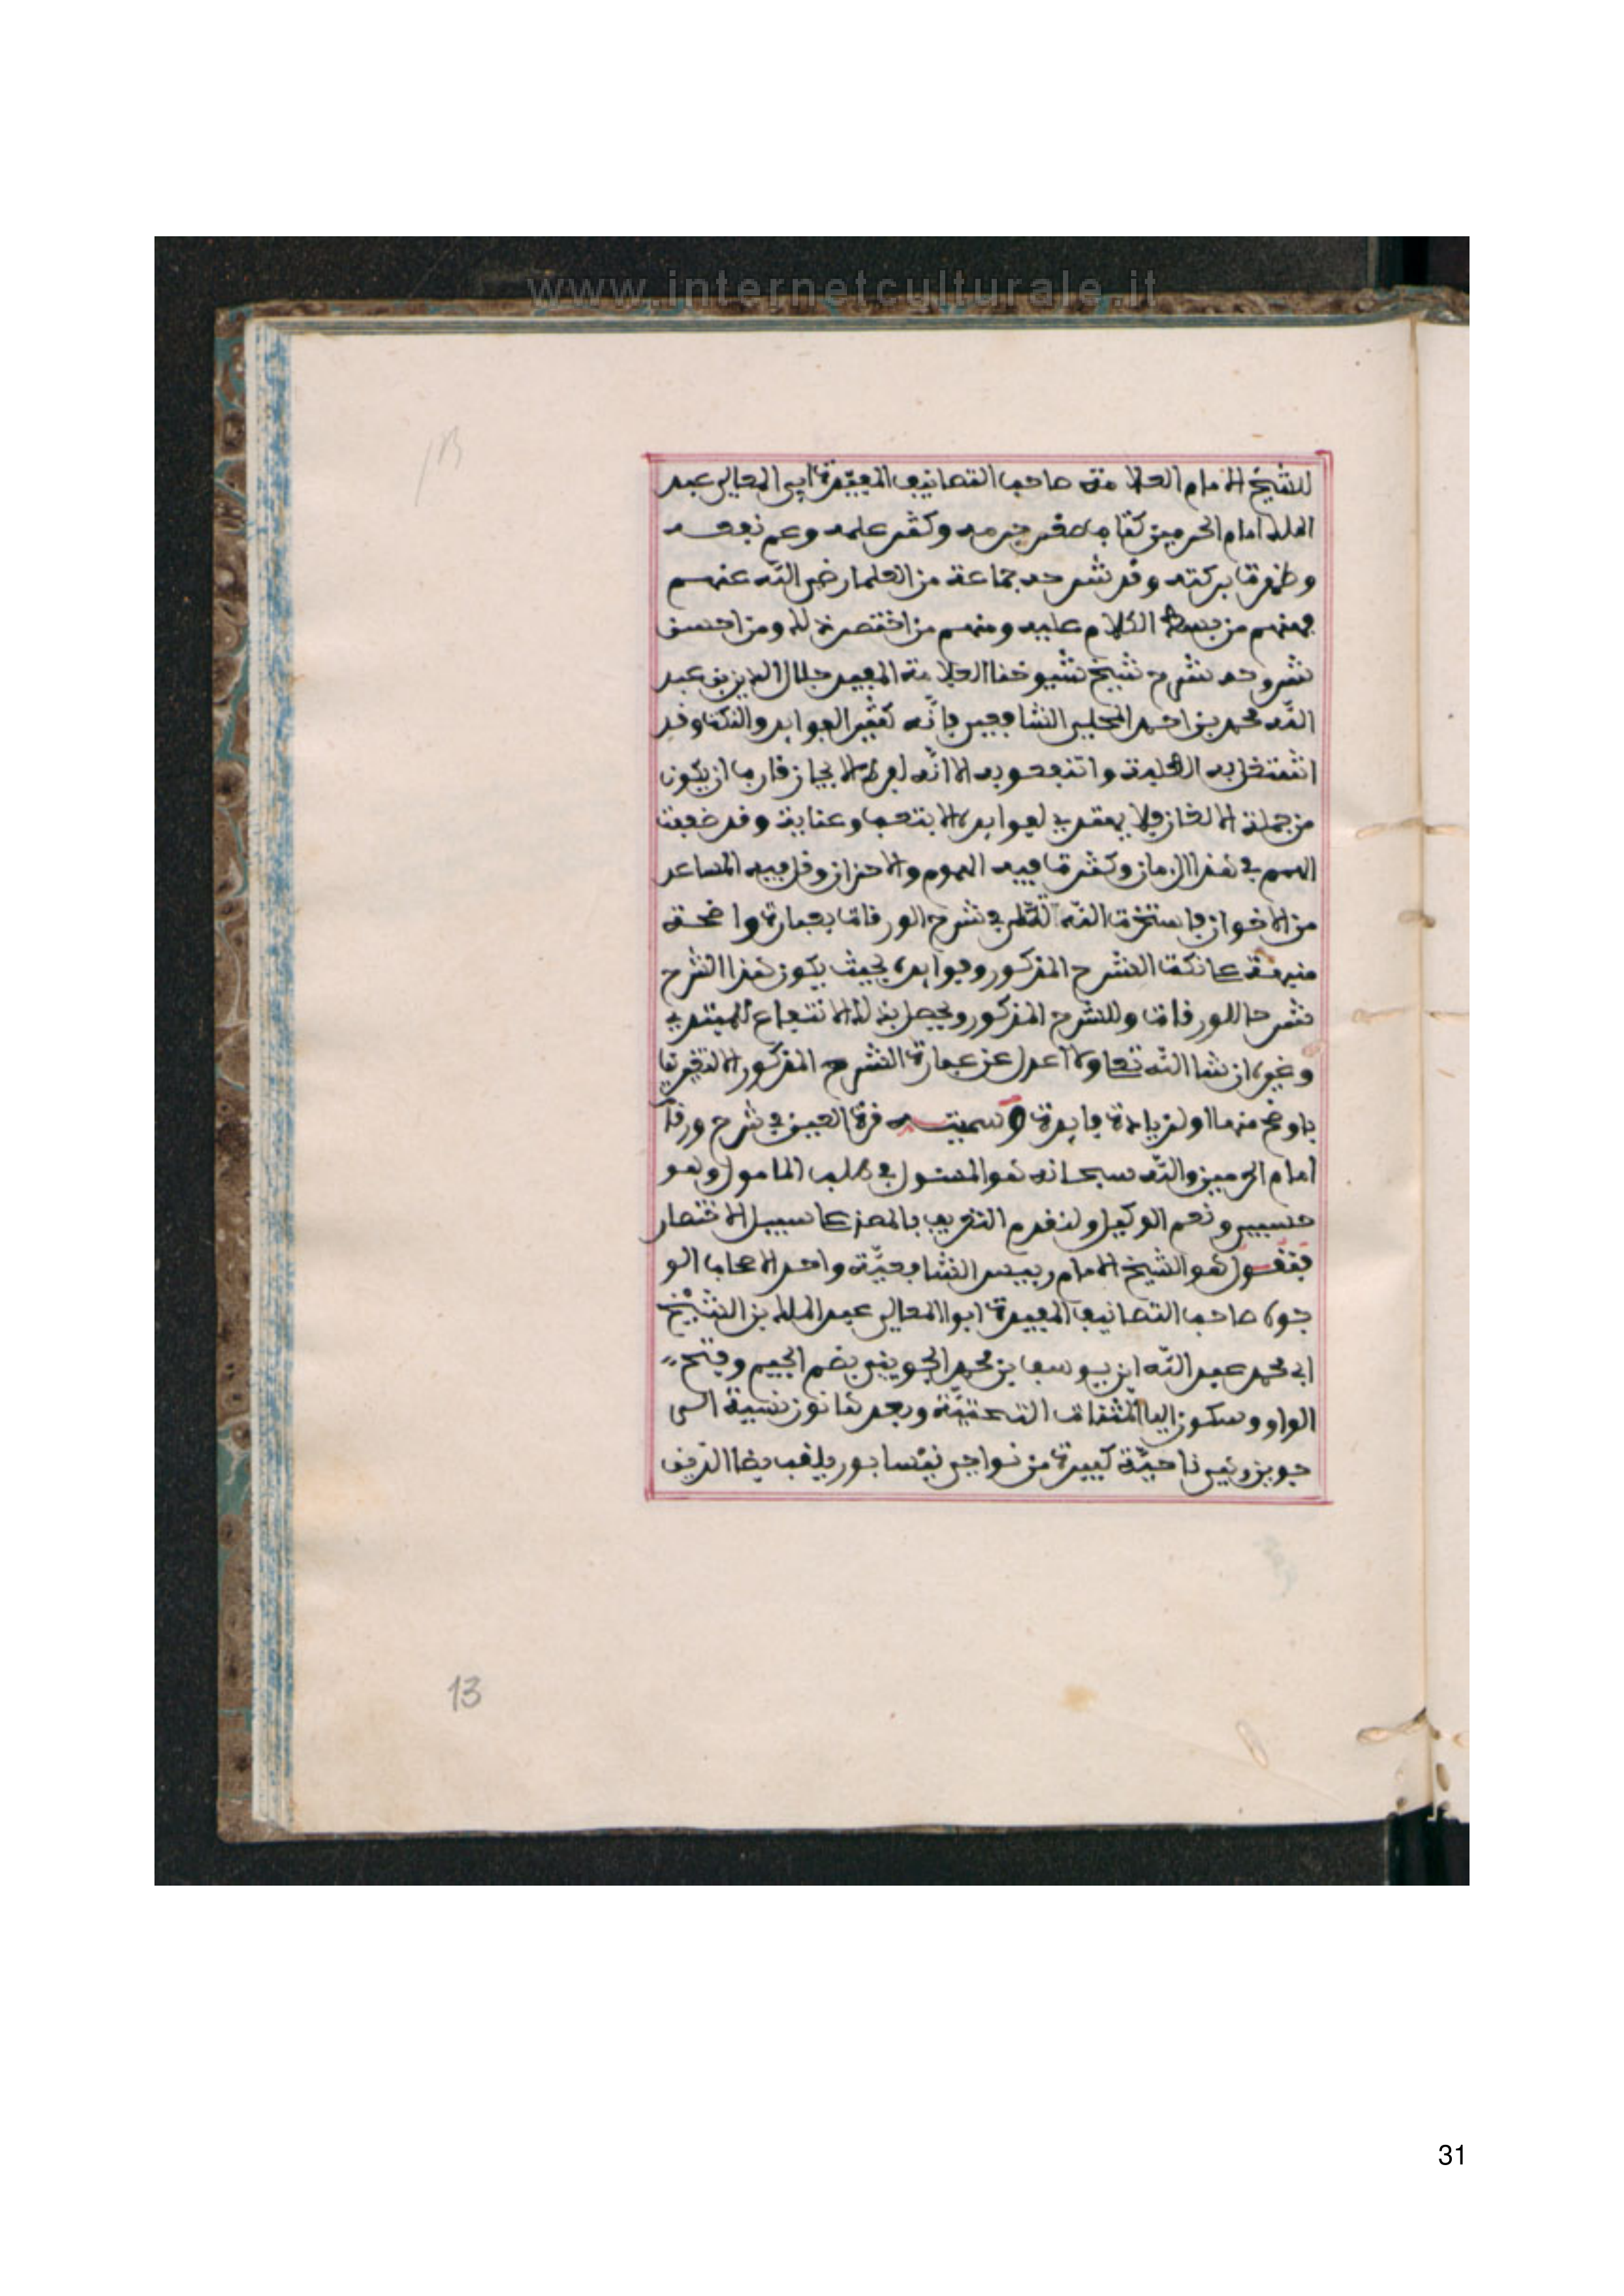 www.internetculturale.it
للشيخ الامام العلامة صاحب التصانيف المفيدة ابي المعالي عبد
الملك امام الحرمين كتاب صغر جرمه وكثر علمه وعم نفعه
وظهرت بركته وقد شرحه جماعة من العلما رضي الله عنهم
فمنهم من بسط الكلام عليه ومنهم من اختصر ذلك ومن احسن
شروحه شرح شيخ شيوخنا العلامة المفيد جلال الدين بن عبد
الله محمد بن احمد المحلي الشافعي فانّه كثير الفوايد والنكت وقد
اشتغل به الطلبة وانتفعوا به الا انّه لفرط الايجاز قارب ان يكون
من جملة الالغاز فلا يهتدي لفوايده الا بتعب وعناية وقد ضعفت
الهمم في هذا الزمان وكثرت فيه الهموم والاحزان وقل فيه المساعد
من الاخوان فاستخرت الله تعالى في شرح الورقات بعبارة واضحة
منبهة على نكت الشرح المذكور وفوايده بحيث يكون هذا الشرح
شرحا للورقات وللشرح المذكور ويحصل بذلك الانتفاع للمبتدي
وغيره ان شا الله تعا ولا اعدل عن عبارة الشرح المذكور الا لتغيرها
باوضح منها او لزيادة فايدة وسميته قرة العين في شرح ورقا
امام الحرمين والله سبحانه هو المسئول في طلب المامول وهو
حسبي ونعم الوكيل ولنقدم التعريف بالمصن على سبيل الاختصار
فنقول هو الشيخ الامام رييس الشافعيّة واحد الاصحاب الو
جوه صاحب التصانيف المفيدة ابوا المعالي عبد الملك بن الشيخ
ابي محمد عبد الله ابن يوسف بن محمد الجويني بضم الجيم وفتح
الواو وسكون اليا المثنات التحتيّة وبعدها نون نسبة الى
جوين وهي ناحيّة كبيرة من نواحي نيسابور يلقب بضيا الدين
13
31